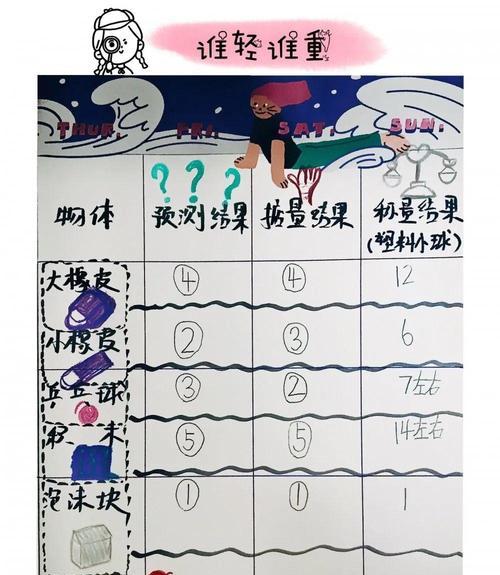 谁轻谁重
THUR. FRI. SAT. SUN.
??? 
物体 预测结果 掂量结果 称量结果
(塑料小球)
大橡皮 ④ ④ 12
小橡皮 ② ③ 6
乒乓球 ③ ② 7左右
⑤ ⑤ 14左右
泡沫块 ① ① 1